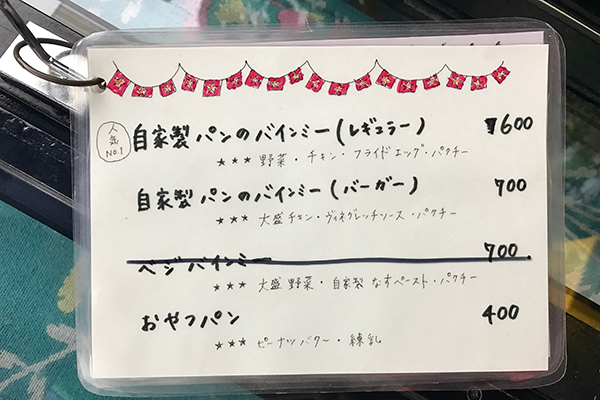 人気 No.1
自家製パンのバインミー(レギュラー) ¥600
★★★ 野菜・チキン・フライドエッグ・パクチー
自家製パンのバインミー(バーガー) 700
★★★ 大盛チキン・ヴィネグレッチソース・パクチー
ベジバインミー 700.
★★★ 大盛野菜・自家製なすペースト・パクチー
おやつパン 400
★★★ ピーナツバター・練乳